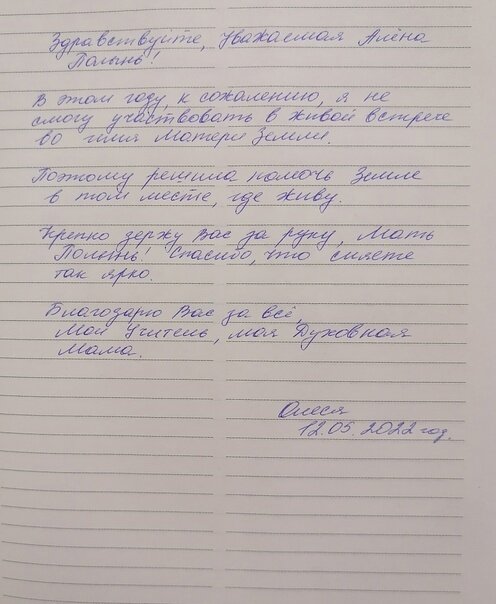 Здравствуйте, Уважаемая Алёна
Полынь!
В этом году, к сожалению, я не
смогу участвовать в живой встрече
во имя Матери Земли.
Поэтому решила помочь Земле
в том месте, где живу.
Крепко держу Вас за руку, Мать
Полынь! Спасибо, что сияете
так ярко.
Благодарю Вас за всё,
Мой Учитель, моя Духовная
Мама.
Олеся
12.05.2022 год.